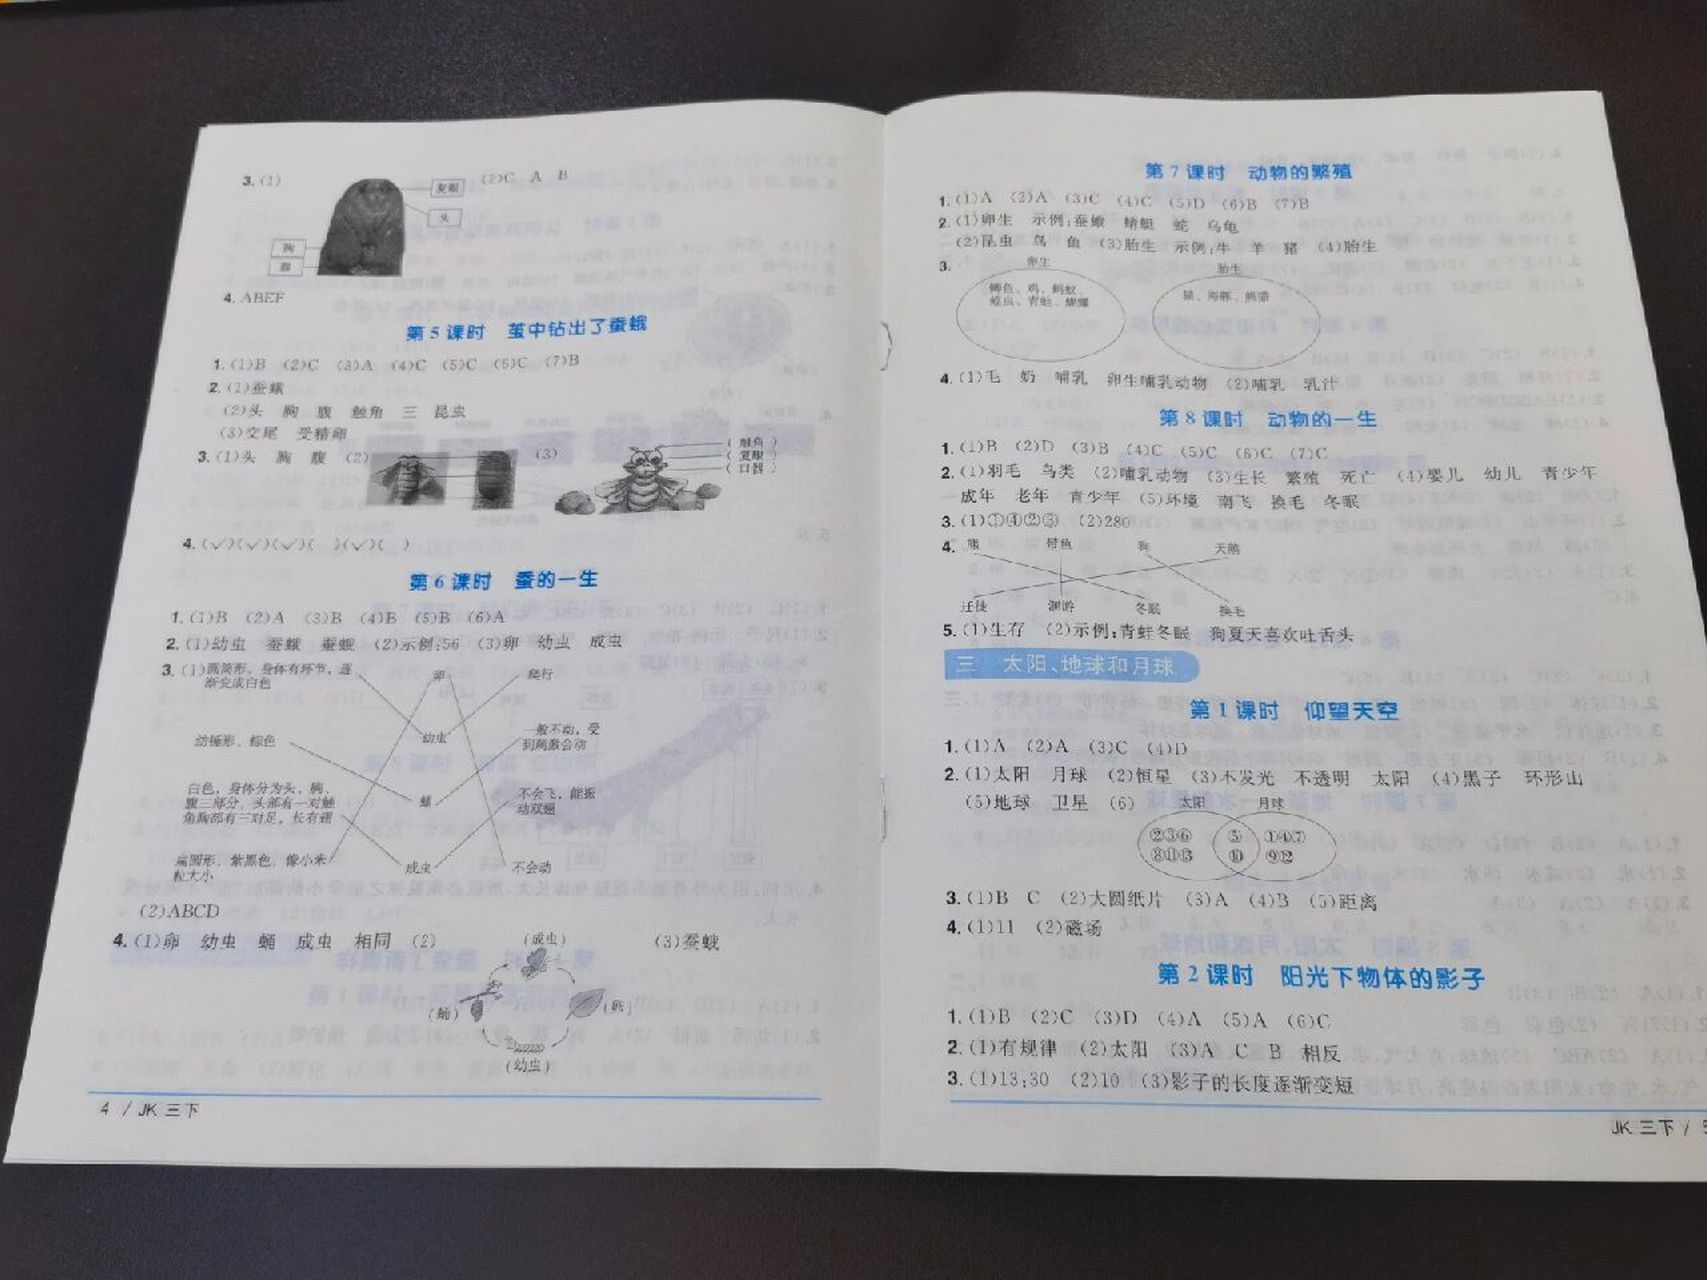 3. (1) 复眼 (2)C A B
头
胸
腹
4. ABEF
第 5 课时 茧中钻出了蚕蛾
1. (1)B (2)C (3)A (4)C (5)C (6)C (7)B
2. (1)蚕蛾
(2)头 胸 腹 触角 三 昆虫
(3)交尾 受精卵
3. (1)头 胸 腹 (2) (3)
(触角)
(复眼)
(口器)
4. (✓)(✓)(✓)( )(✓)( )
第 6 课时 蚕的一生
1. (1)B (2)A (3)B (4)B (5)B (6)A
2. (1)幼虫 蚕蛾 蚕蛾 (2)示例:56 (3)卵 幼虫 成虫
3. (1)圆筒形,身体有环节,逐 卵 爬行
渐变成白色
纺锤形、棕色 幼虫 一般不动,受
到刺激会动
白色,身体分为头、胸、
腹三部分,头部有一对触
角胸部有三对足,长有翅
蛹 不会飞,能振
动双翅
扁圆形,紫黑色,像小米
粒大小
成虫 不会动
(2)ABCD
4. (1)卵 幼虫 蛹 成虫 相同 (2) (成虫) (3)蚕蛾
(蛹) (卵)
(幼虫)
4 / JK 三下
第 7 课时 动物的繁殖
1. (1)A (2)A (3)C (4)C (5)D (6)B (7)B
2. (1)卵生 示例:蚕蛾 蜻蜓 蛇 乌龟
(2)昆虫 鸟 鱼 (3)胎生 示例:牛 羊 猪 (4)胎生
3. 卵生 胎生
鲫鱼、鸡、蚂蚁、
蝗虫、青蛙、蝴蝶
猫、海豚、熊猫
4. (1)毛 奶 哺乳 卵生哺乳动物 (2)哺乳 乳汁
第 8 课时 动物的一生
1. (1)B (2)D (3)B (4)C (5)C (6)C (7)C
2. (1)羽毛 鸟类 (2)哺乳动物 (3)生长 繁殖 死亡 (4)婴儿 幼儿 青少年
成年 老年 青少年 (5)环境 南飞 换毛 冬眠
3. (1)①④②③ (2)280
4. 熊 鳟鱼 狗 天鹅
迁徙 洄游 冬眠 换毛
5. (1)生存 (2)示例:青蛙冬眠 狗夏天喜欢吐舌头
三 太阳、地球和月球
第 1 课时 仰望天空
1. (1)A (2)A (3)C (4)D
2. (1)太阳 月球 (2)恒星 (3)不发光 不透明 太阳 (4)黑子 环形山
(5)地球 卫星 (6) 太阳 月球
②③⑥ ⑤ ①④⑦
3. (1)B C (2)大圆纸片 (3)A (4)B (5)距离
4. (1)11 (2)磁场
第 2 课时 阳光下物体的影子
1. (1)B (2)C (3)D (4)A (5)A (6)C
2. (1)有规律 (2)太阳 (3)A C B 相反
3. (1)13:30 (2)10 (3)影子的长度逐渐变短
JK 三下 /